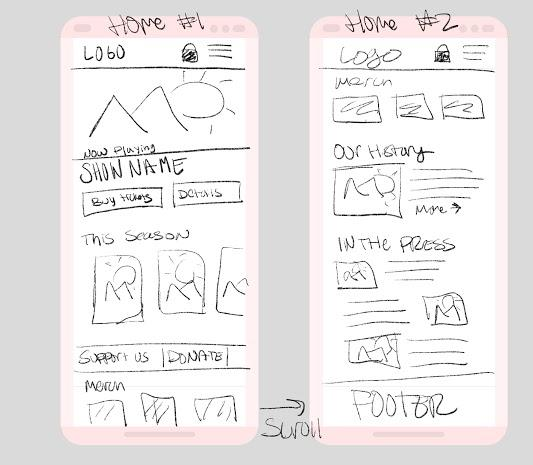 Home #1
LOGO
Now Playing
SHOW NAME
Buy tickets
Details
This Season
Support us
DONATE
Merch
Scroll
Home #2
Logo
Merch
Our History
More →
IN THE PRESS
FOOTER